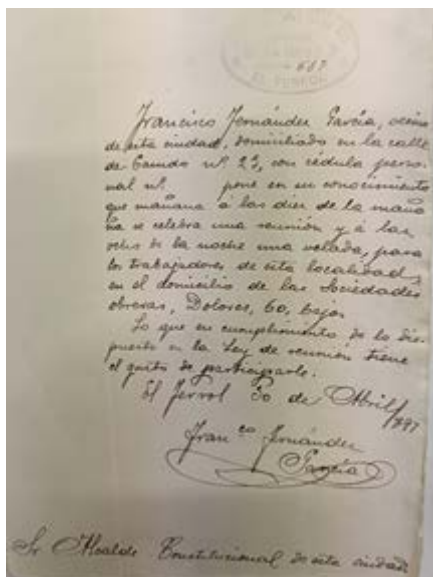 587
EL FERROL
Francisco Fernández García, vecino
de esta ciudad, domiciliado en la calle
de Canido nº 23, con cédula perso-
nal nº. pone en su conocimiento
que mañana á las diez de la maña
na se celebra una reunión y á las
ocho de la noche una velada, para
los trabajadores de esta localidad,
en el domicilio de las Sociedades
obreras, Dolores, 60, bajo.
Lo que en cumplimiento de lo dis-
puesto en la Ley de reunión tiene
el gusto de participarle.
El Ferrol 30 de Abril/1897
Franco Fernández
García
Sr Alcalde Constitucional de esta ciudad